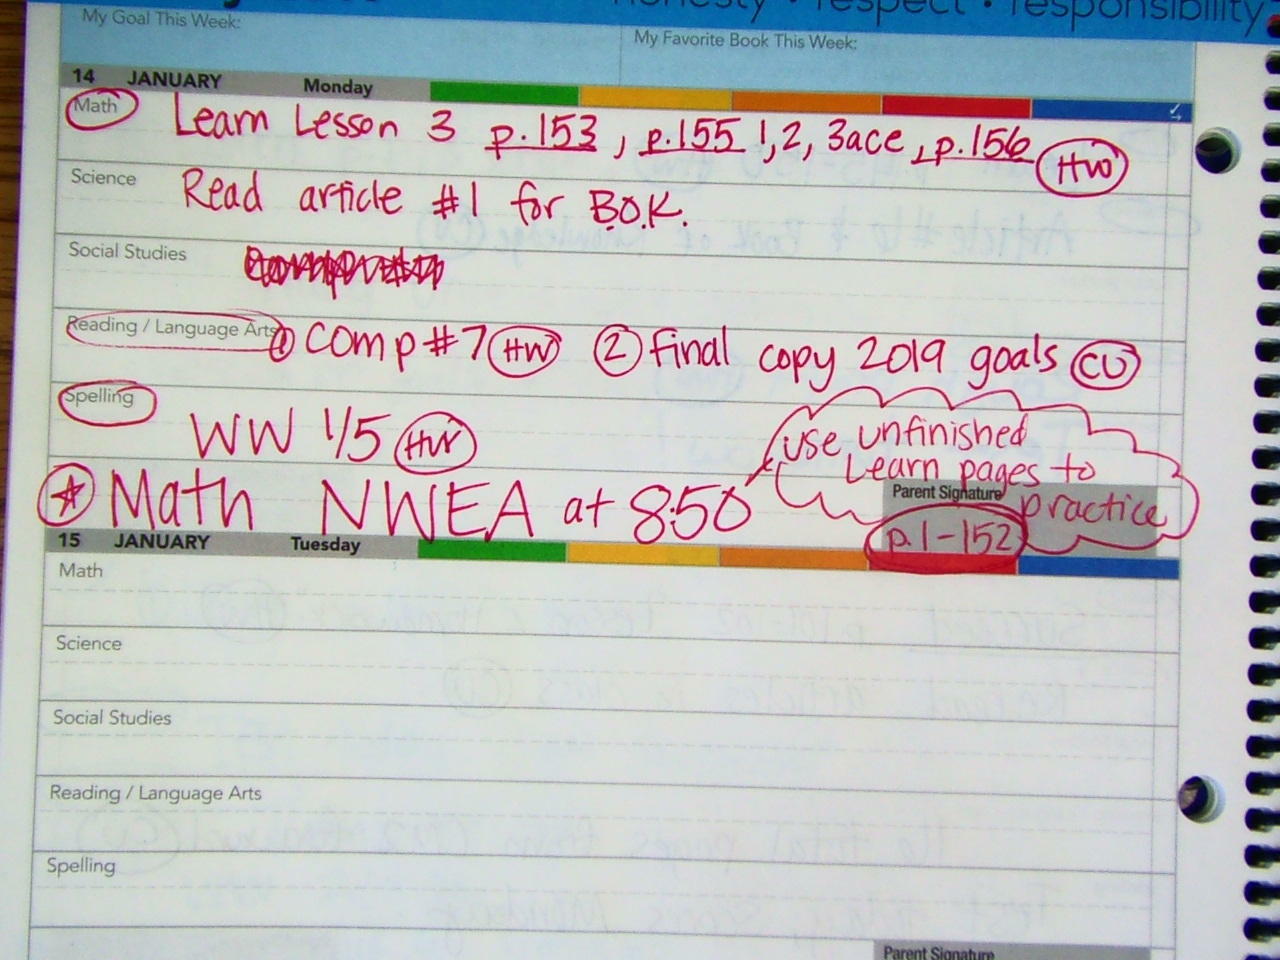 honesty • respect • responsibility
My Goal This Week:
My Favorite Book This Week:
14 JANUARY Monday
Math Learn Lesson 3 p.153, p.155 1,2, 3ace, p.156 HW
Science Read article #1 for B.O.K.
Social Studies
Reading / Language Arts ① Comp #7 HW ② final copy 2019 goals CU
Spelling
WW 1/5 HW
use unfinished
Learn pages to
practice
Parent Signature
p.1-152
☆ Math NWEA at 8:50
15 JANUARY Tuesday
Math
Science
Social Studies
Reading / Language Arts
Spelling
Parent Signature